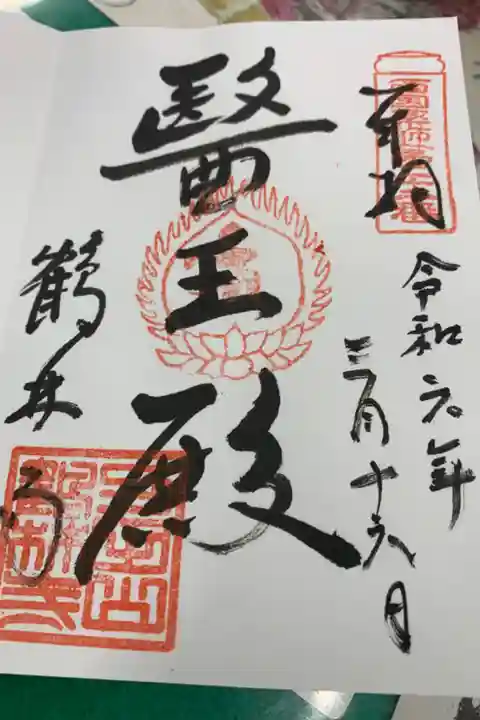 奉拝
令和六年
三月十六日
醫王殿
鶴林寺